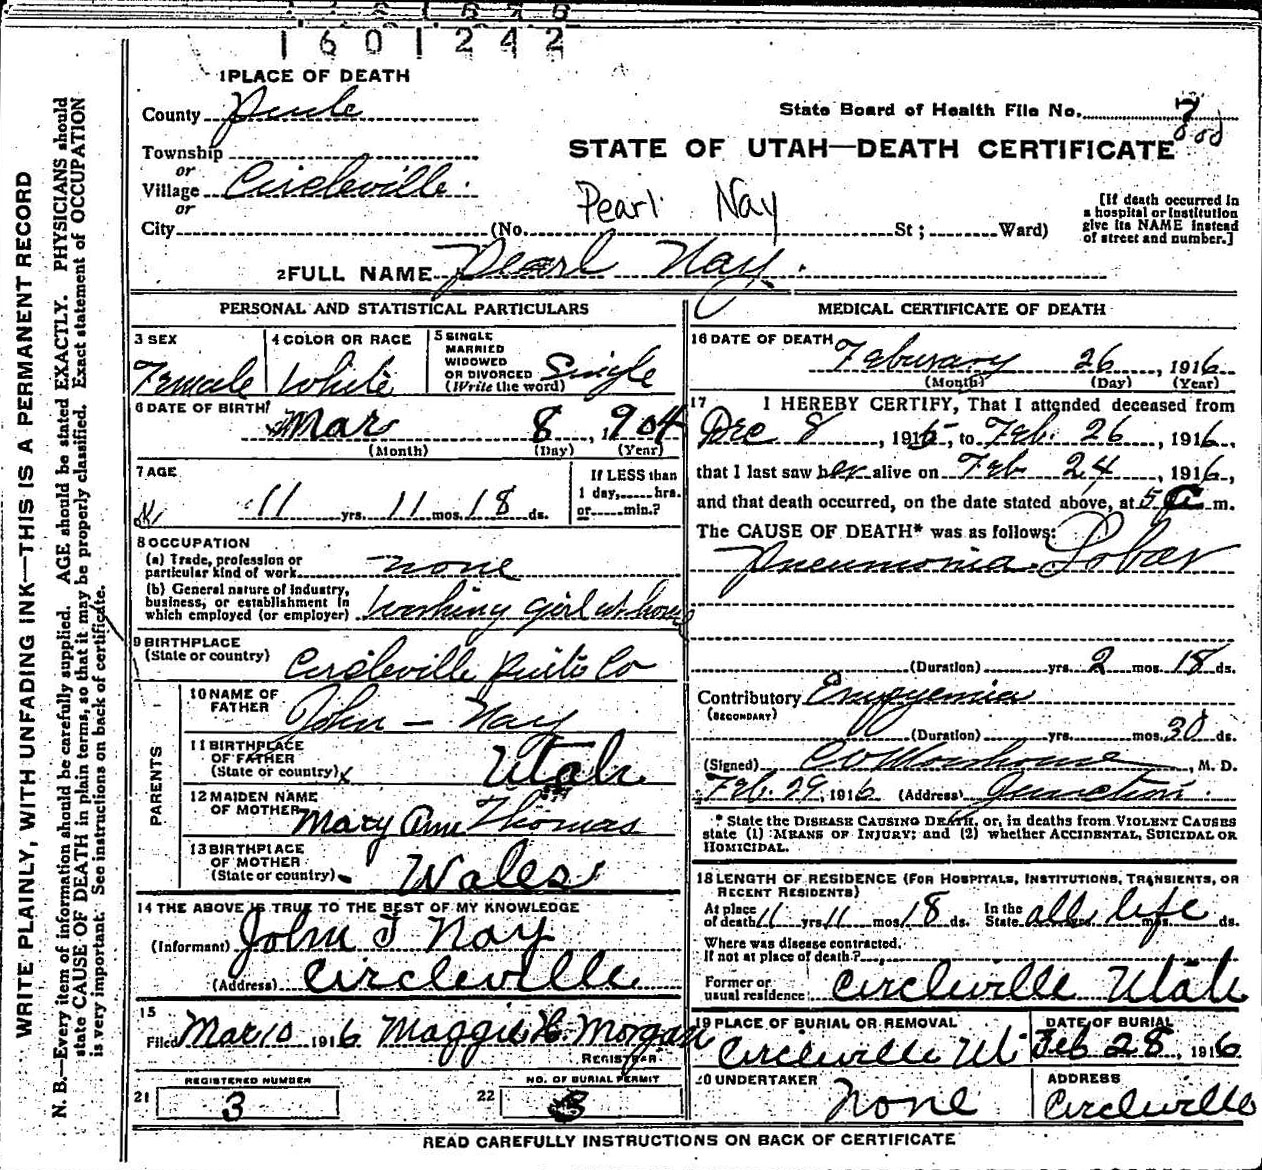 1 6 0 1 2 4 2
1 PLACE OF DEATH
County Piute
State Board of Health File No. 7
STATE OF UTAH—DEATH CERTIFICATE
Township
or
Village Circleville
or
City (No. Pearl Nay St; Ward)
[If death occurred in
a hospital or institution
give its NAME instead
of street and number.]
2 FULL NAME Pearl Nay
PERSONAL AND STATISTICAL PARTICULARS
3 SEX
Female
4 COLOR OR RACE
White
5 SINGLE
MARRIED
WIDOWED
OR DIVORCED
(Write the word) Single
6 DATE OF BIRTH
Mar 8, 1904
(Month) (Day) (Year)
7 AGE
11 yrs. 11 mos. 18 ds.
If LESS than
1 day, hrs.
or min.?
8 OCCUPATION
(a) Trade, profession or
particular kind of work none
(b) General nature of industry,
business, or establishment in
which employed (or employer) Working girl at home
9 BIRTHPLACE
(State or country) Circleville Piute Co
PARENTS
10 NAME OF
FATHER John – Nay
11 BIRTHPLACE
OF FATHER
(State or country) Utah
12 MAIDEN NAME
OF MOTHER Mary Ann Thomas
13 BIRTHPLACE
OF MOTHER
(State or country) Wales
14 THE ABOVE IS TRUE TO THE BEST OF MY KNOWLEDGE
(Informant) John T Nay
(Address) Circleville
15
Filed Mar 10 1916 Maggie H. Morgan
REGISTRAR
REGISTERED NUMBER
21 3
NO. OF BURIAL PERMIT
22
MEDICAL CERTIFICATE OF DEATH
16 DATE OF DEATH
February 26, 1916
(Month) (Day) (Year)
17 I HEREBY CERTIFY, That I attended deceased from
Dec 8, 1915, to Feb. 26, 1916,
that I last saw her alive on Feb 24, 1916,
and that death occurred, on the date stated above, at 5 a m.
The CAUSE OF DEATH* was as follows:
Pneumonia Lobar
(Duration) yrs. 2 mos. 18 ds.
Contributory Empyemia
(SECONDARY)
(Duration) yrs. mos. 20 ds.
(Signed) M. D.
Feb. 29, 1916 (Address) Junction
* State the DISEASE CAUSING DEATH, or, in deaths from VIOLENT CAUSES
state (1) MEANS OF INJURY; and (2) whether ACCIDENTAL, SUICIDAL OR
HOMICIDAL.
18 LENGTH OF RESIDENCE (FOR HOSPITALS, INSTITUTIONS, TRANSIENTS, OR
RECENT RESIDENTS)
At place
of death 11 yrs. 11 mos. 18 ds. In the
State all life ds.
Where was disease contracted,
If not at place of death?
Former or
usual residence Circleville Utah
19 PLACE OF BURIAL OR REMOVAL
Circleville Ut
DATE OF BURIAL
Feb 28, 1916
20 UNDERTAKER
None
ADDRESS
Circleville
READ CAREFULLY INSTRUCTIONS ON BACK OF CERTIFICATE
WRITE PLAINLY, WITH UNFADING INK—THIS IS A PERMANENT RECORD
N. B.—Every item of information should be carefully supplied. AGE should be stated EXACTLY. PHYSICIANS should
state CAUSE OF DEATH in plain terms, so that it may be properly classified. Exact statement of OCCUPATION
is very important. See instructions on back of certificate.